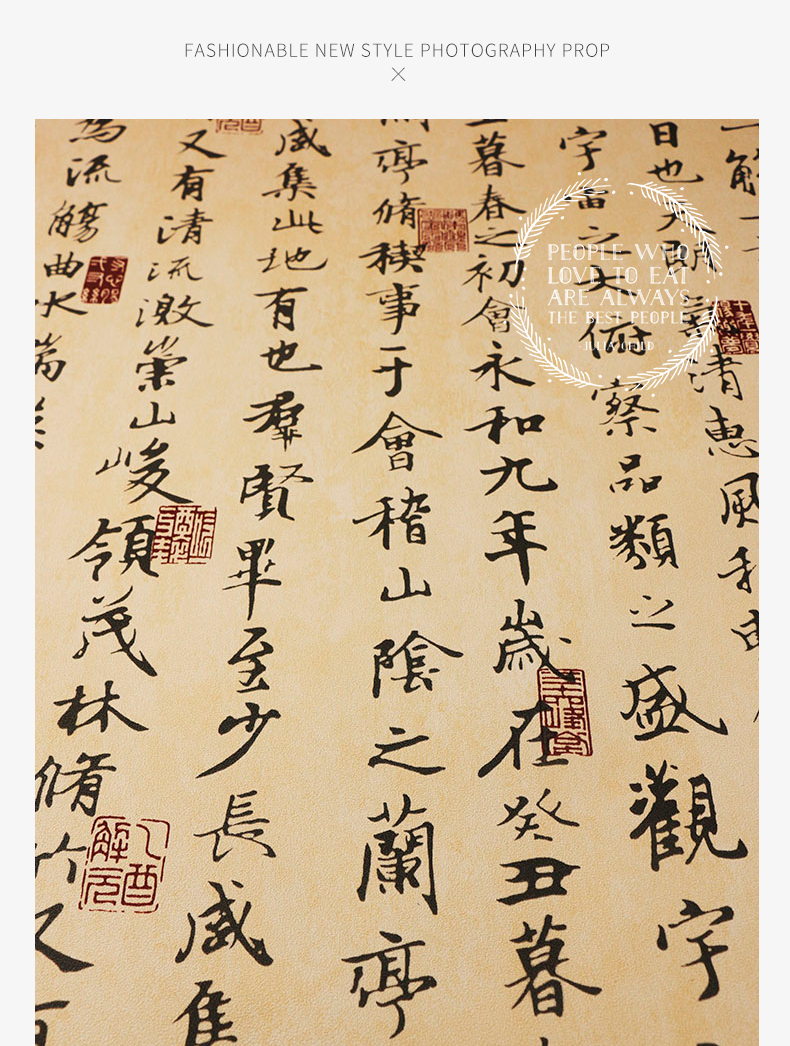 FASHIONABLE NEW STYLE PHOTOGRAPHY PROP
日也天朗氣清惠風和
宇宙之大俯察品類之盛觀宇
暮春之初會永和九年歲在癸丑暮
蘭亭脩稧事于會稽山陰之蘭亭
咸集此地有也羣賢畢至少長咸集
又有清流激崇山峻領茂林脩竹又有
為流觴曲水湍
乙酉解元
PEOPLE WHO
LOVE TO EAT
ARE ALWAYS
THE BEST PEOPLE
-JULIA CHILD